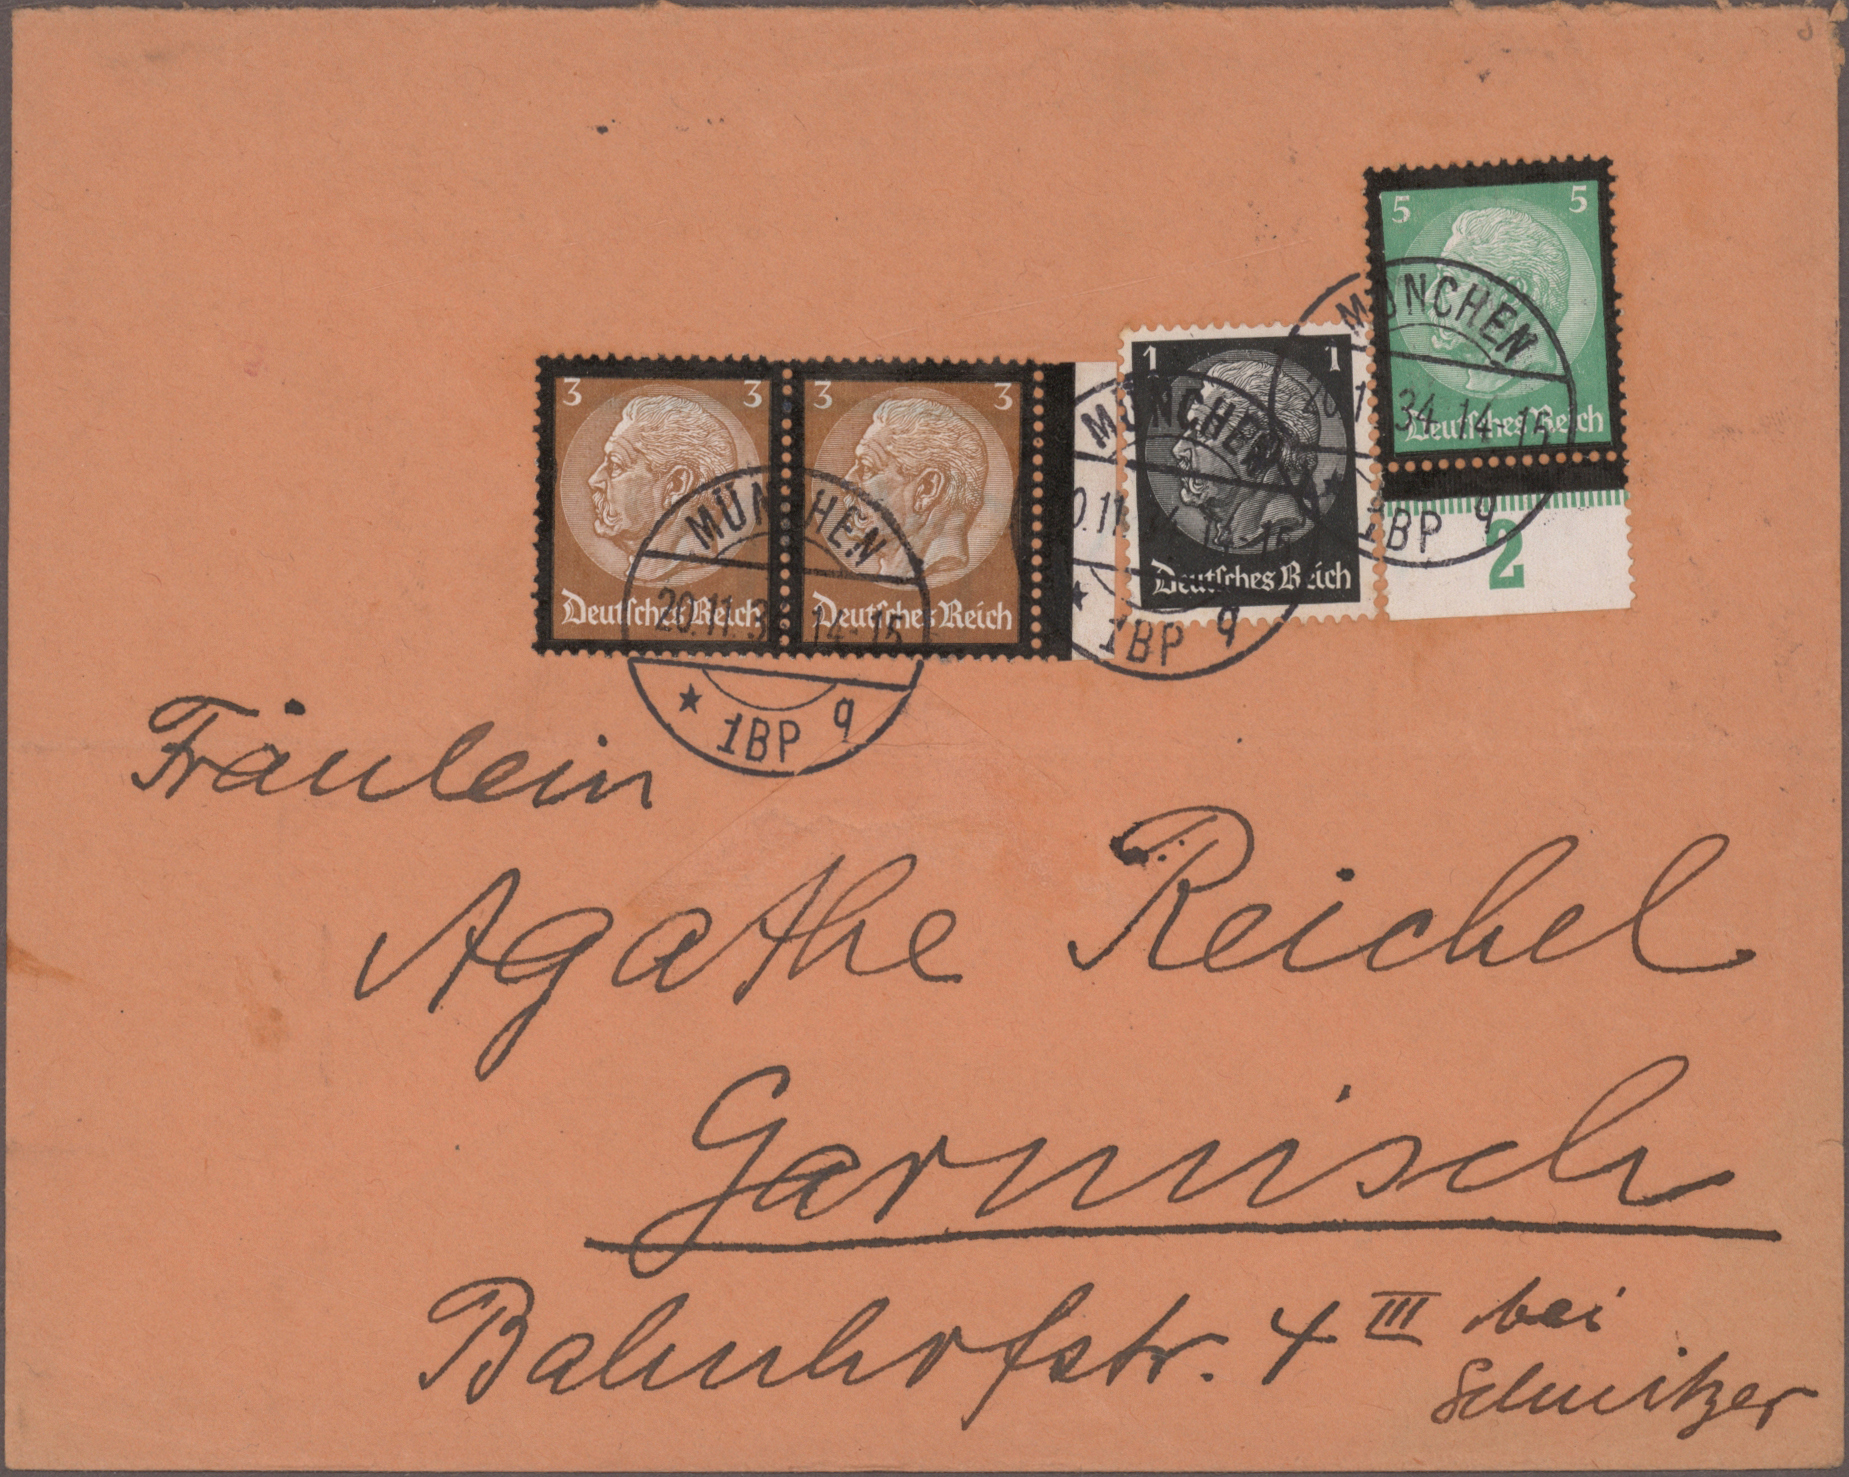 5 5
3 3
3 3
1 1
Deutsches Reich
Deutsches Reich
Deutsches Reich
Deutsches Reich
2
MÜNCHEN
20.11.34 14-15
* 1BP q
MÜNCHEN
* 1BP q
MÜNCHEN
34.14-15
* 1BP q
Fräulein
Agathe Reichel
Garmisch
Bahnhofstr. 4 III bei
Schnitzer